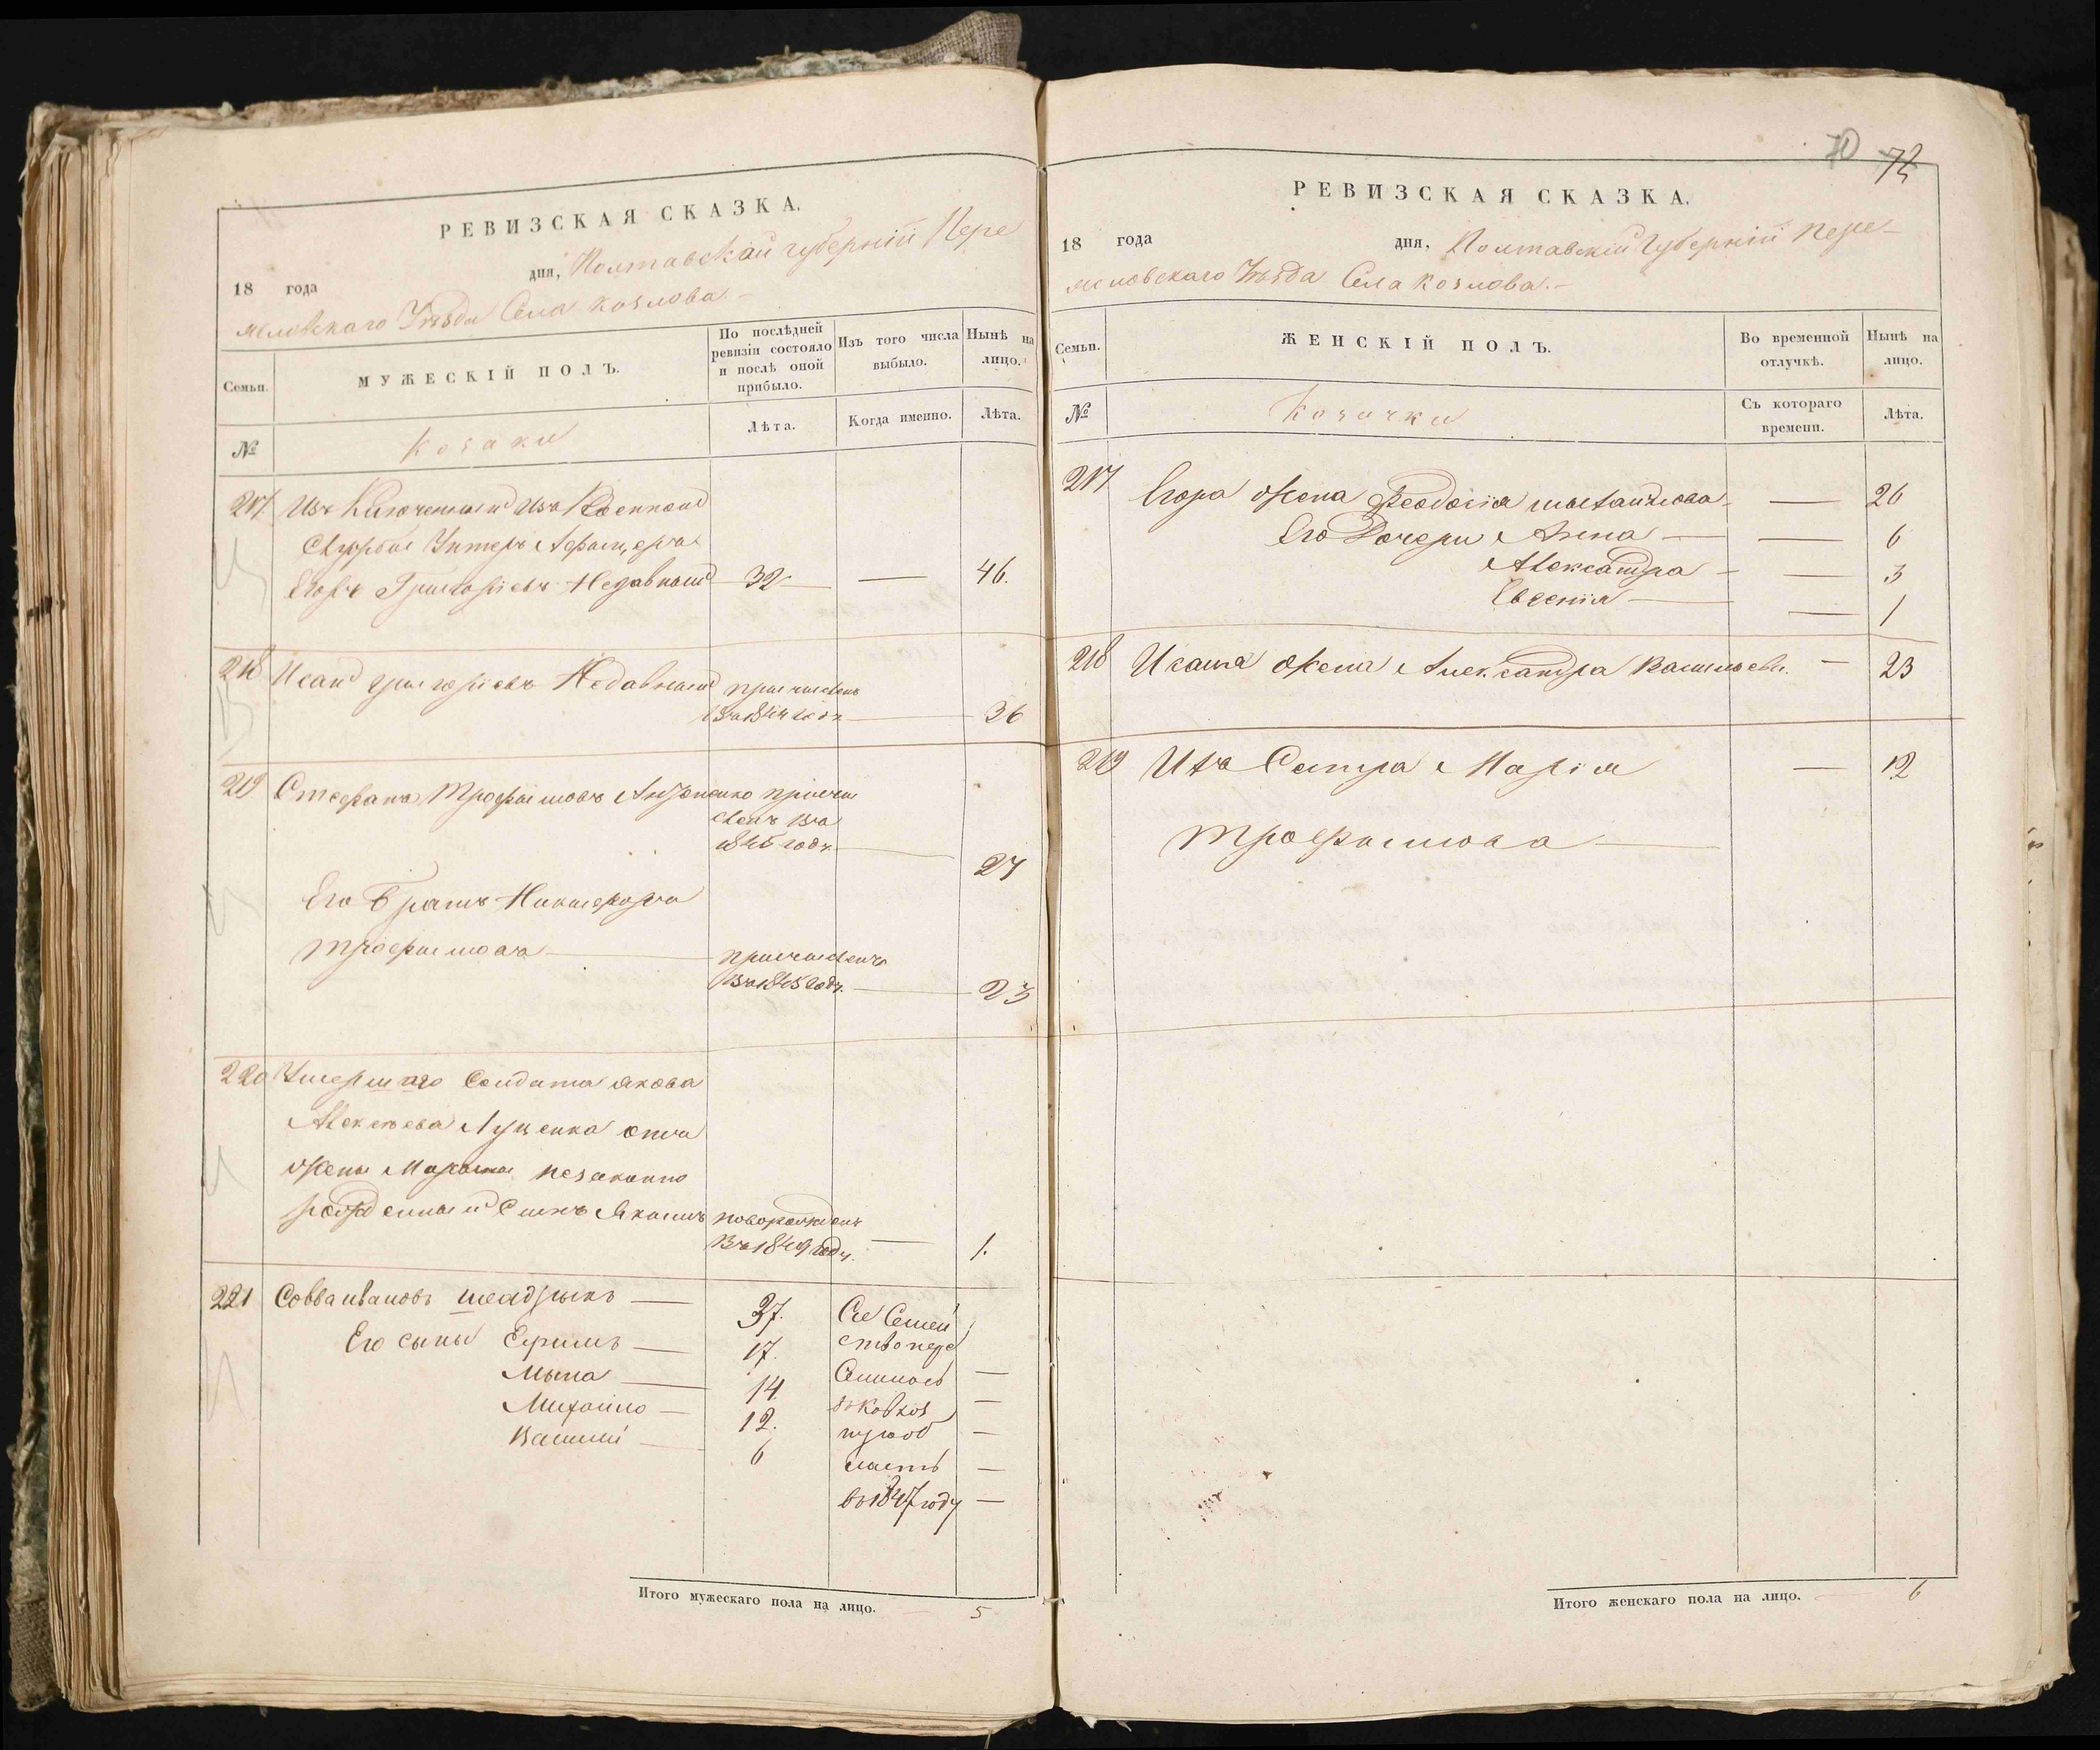 РЕВИЗСКАЯ СКАЗКА.
18 года дня, Полтавской губерніи Пере
яславскаго Уѣзда Села Козлова
Семьи. МУЖЕСКІЙ ПОЛЪ. По послѣдней ревизіи состояло и послѣ оной прибыло. Изъ того числа выбыло. Нынѣ на лицо.
№ Козаки Лѣта. Когда именно. Лѣта.
217 Изъ Ключенный изъ Военной
Службы Унтеръ Афицеръ
Егоръ Григорiевъ Недавный 32 — 46.
218 Исай григорiевъ Недавный причисленъ
въ 1844 годѣ — 36
219 Стефанъ Трофимовъ причи
сленъ въ
1845 годѣ —
27
Его Братъ Никифоръ
Трофимовъ — причисленъ
въ 1845 годѣ. — 23
220 Умершаго Солдата Якова
Алексѣева Луценка отъ
жены незаконно
рожденный Сынъ Якимъ новорожденъ
въ 1849 годѣ. — 1.
221 Савва Ивановъ шеадрыкъ — 37. Сіе Семей
Его сыны Ефимъ — 17. ство пере
Мына — 14 селилось —
Михайло — 12. въ Кавказ —
Василій — 6 скую об —
ласть —
въ 1847 году —
Итого мужескаго пола на лицо. 5
70 72
РЕВИЗСКАЯ СКАЗКА.
18 года дня, Полтавской Губерніи Пере-
яславскаго Уѣзда Села Козлова.-
Семьи. ЖЕНСКІЙ ПОЛЪ. Во временной отлучкѣ. Нынѣ на лицо.
№ Козачки Съ котораго времени. Лѣта.
217 Егора жена Феодосія михайлова — 26
Его Дочери Анна — — 6
Александра — — 3
Евгенія — — 1
218 Исаия жена Александра Васильева — 23
219 Ихъ Сестра Марія — 12
Трофимова —
Итого женскаго пола на лицо. 6